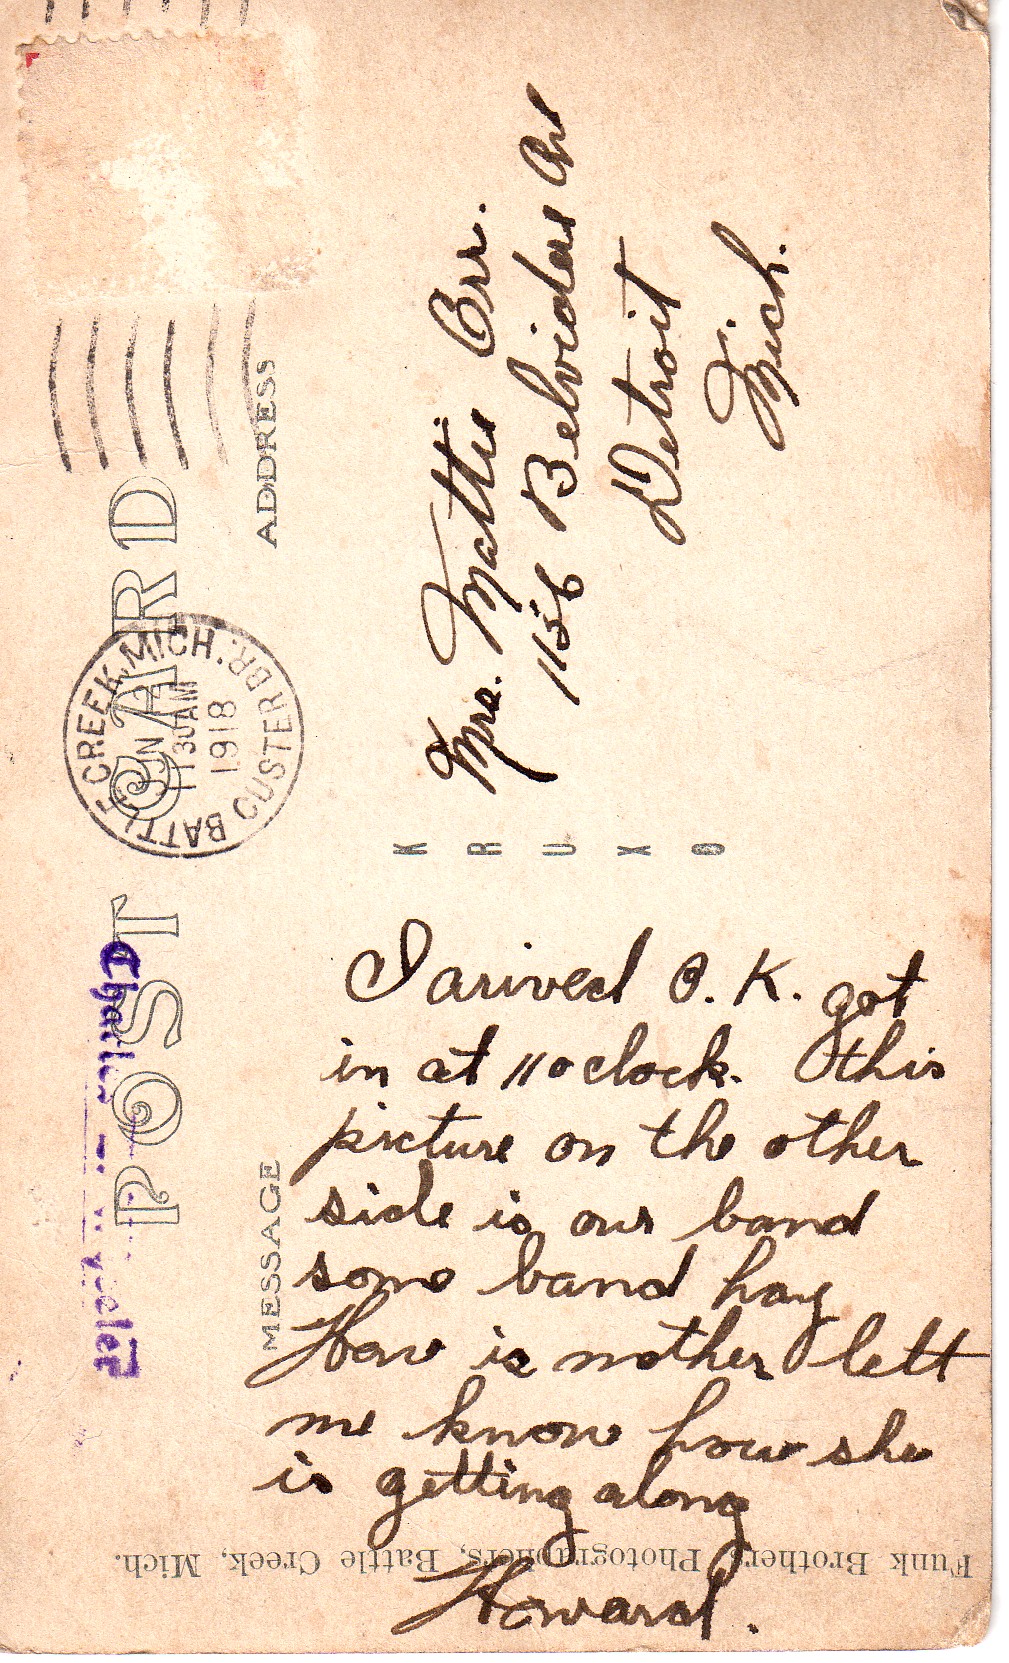 POST CARD
ADDRESS
MESSAGE
BATTLE CREEK, MICH.
CUSTER BR.
1130AM
1918
Mrs. Mattie Orr.
1156 Belvidere Av
Detroit
Mich.
KRUXO
I arived O.K. got
in at 11 oclock. this
picture on the other
side is our band
some band hay
How is mother lett
me know how she
is getting along
Howard.
Funk Brothers, Photographers, Battle Creek, Mich.